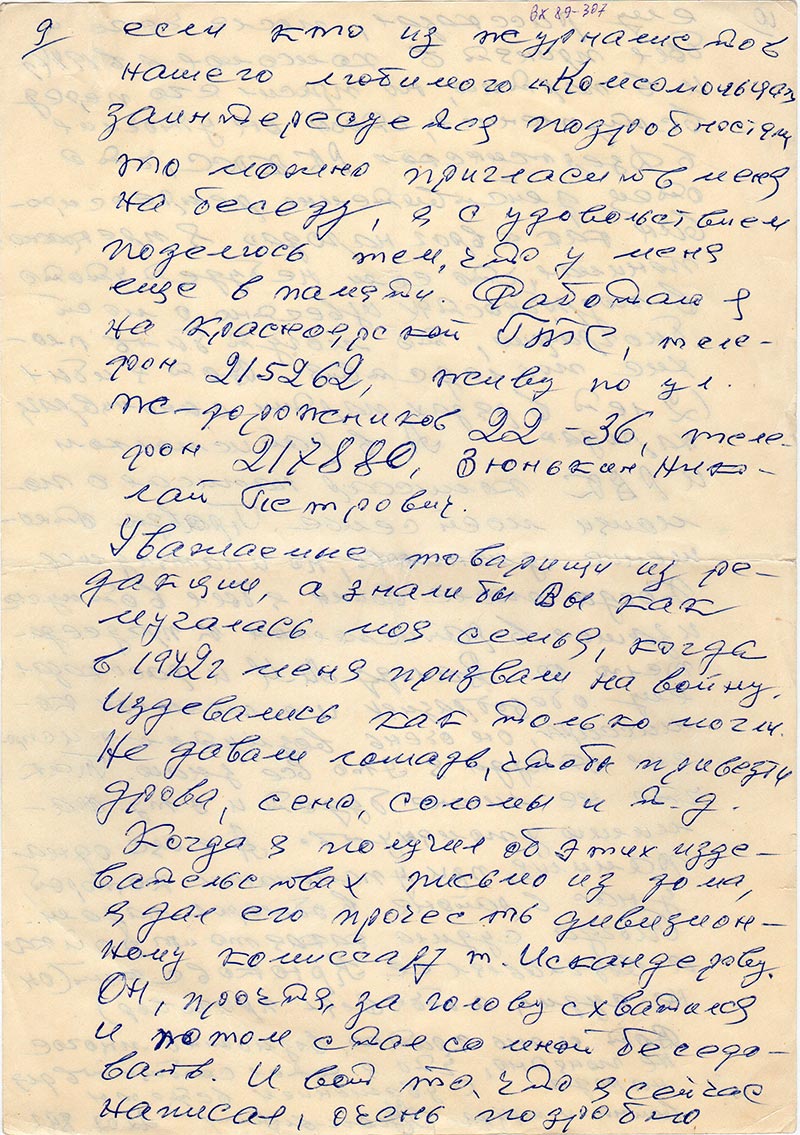 вх 89-307
9 если кто из журналистов
нашего любимого „Комсомольца"
заинтересуется подробностями
то можно пригласить меня
на беседу, я с удовольствием
поделюсь тем, что у меня
еще в памяти. Работал я
на Красноярской ГТС, теле-
фон 215262, живу по ул.
Ж-дорожников 22-36, теле-
фон 217880, Зюнькин Нико-
лай Петрович.
Уважаемые товарищи из ре-
дакции, а знали бы Вы как
мучалась моя семья, когда
в 1942г меня призвали на войну.
Издевались как только могли.
Не давали лошадь, чтобы привезти
дрова, сено, соломы и т.д.
Когда я получил об этих изде-
вательствах письмо из дома,
я дал его прочесть дивизион-
ному комиссару т. Искандерову.
Он, прочтя, за голову схватился
и потом стал со мной беседо-
вать. И вот то, что я сейчас
написал, очень подробно